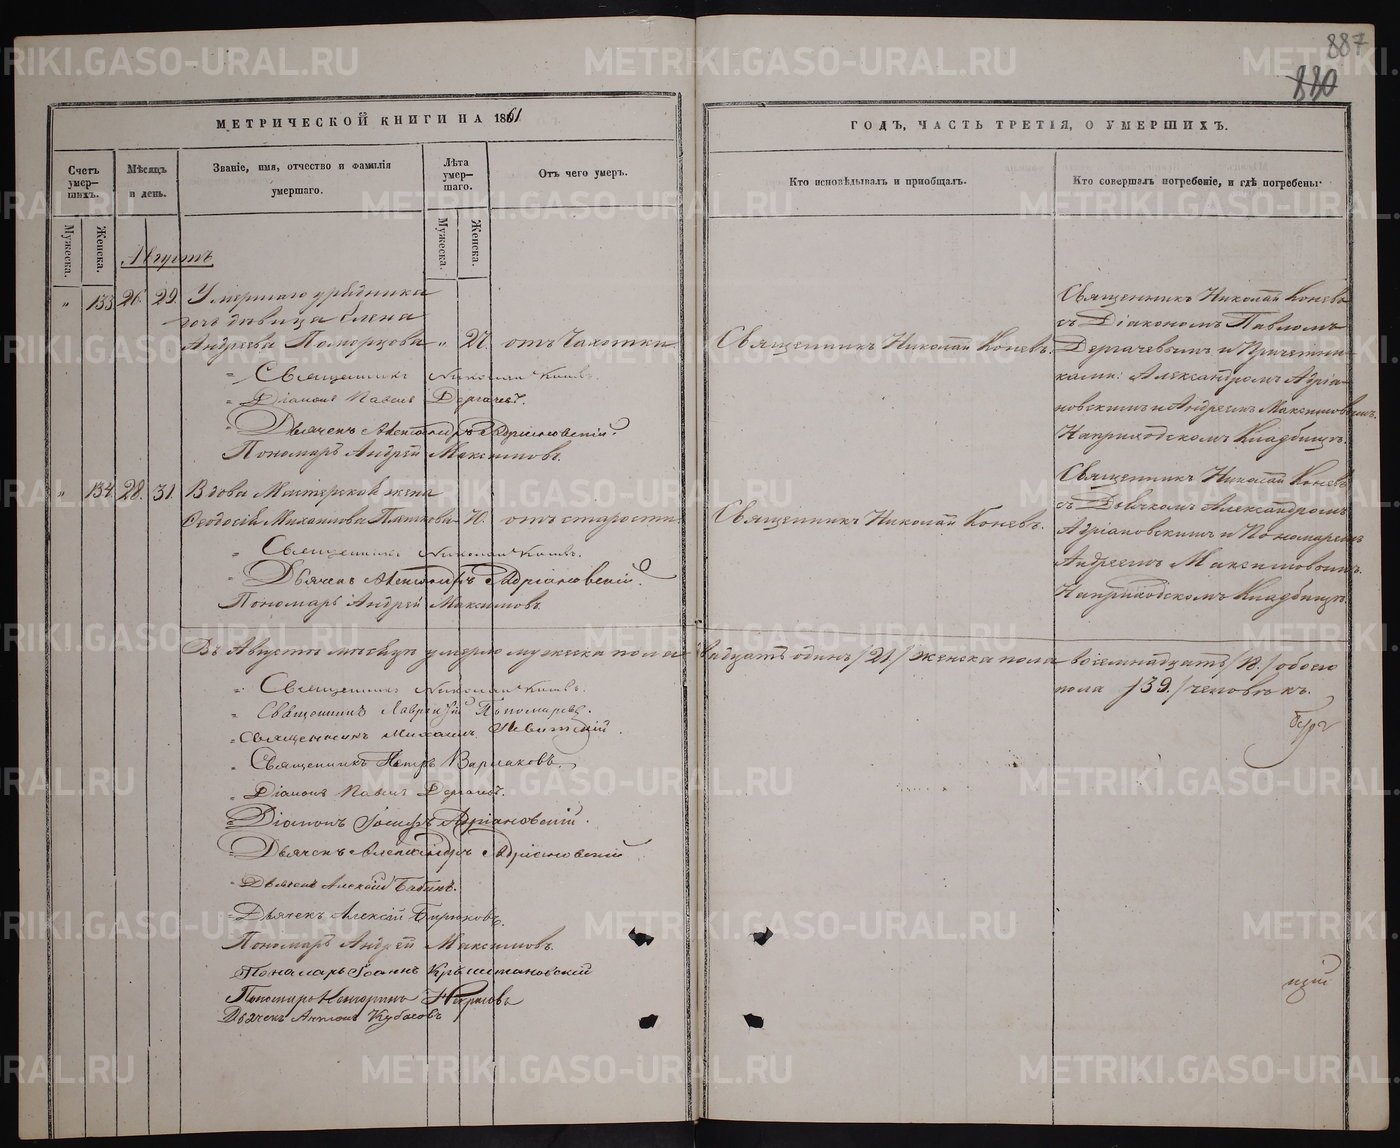 887
880
МЕТРИЧЕСКОЙ КНИГИ НА 1861
ГОДЪ, ЧАСТЬ ТРЕТІЯ, О УМЕРШИХЪ.
Счетъ умер—шихъ.
Мѣсяцъ и день.
Званіе, имя, отчество и фамилія умершаго.
Лѣта умер—шаго.
Отъ чего умеръ.
Кто исповѣдывалъ и приобщалъ.
Кто совершалъ погребеніе, и гдѣ погребены.
Мужеска.
Женска.
Мужеска.
Женска.
Августъ
" 133. 26. 29. Умершаго урядника
дочь дѣвица Елена
Андреева Поморцова " 27. отъ чахотки
Священникъ Николай Коневъ.
Священникъ Николай Коневъ
съ Діакономъ Павломъ
Дергачевымъ и Причетни-
ками: Александромъ Адріа-
новскимъ и Андреемъ Максимовымъ.
На приходскомъ кладбищѣ.
Священникъ Николай Коневъ.
Діаконъ Павелъ Дергачевъ.
Дьячекъ Александръ Адріановскій.
Пономарь Андрей Максимовъ.
" 134. 28. 31. Вдова Мастерская жена
Феодосія Михаилова 70. отъ старости.
Священникъ Николай Коневъ.
Священникъ Николай Коневъ
съ Дьячкомъ Александромъ
Адріановскимъ и Пономаремъ
Андреемъ Максимовымъ.
На приходскомъ кладбищѣ.
Священникъ Николай Коневъ.
Дьячекъ Александръ Адріановскій.
Пономарь Андрей Максимовъ.
Въ Августѣ мѣсяцѣ умерло мужеска пола двадцать одинъ /21/ женска пола восемнадцать /18./ обоего
пола /39./ человѣкъ.
Священникъ Николай Коневъ.
Священникъ Лаврентій Пономаревъ.
Священникъ Михаилъ Левитскій.
Священникъ Петръ Варлаковъ.
Діаконъ Павелъ Дергачевъ.
Діаконъ Іосифъ Адріановскій.
Дьячекъ Александръ Адріановскій
Дьячекъ Алексій Бабинъ.
Дьячекъ Алексій Бирюковъ.
Пономарь Андрей Максимовъ.
Пономарь Іоаннъ
Пономарь Некрасовъ
Дьячекъ Антонъ Кубасовъ
METRIKI.GASO-URAL.RU